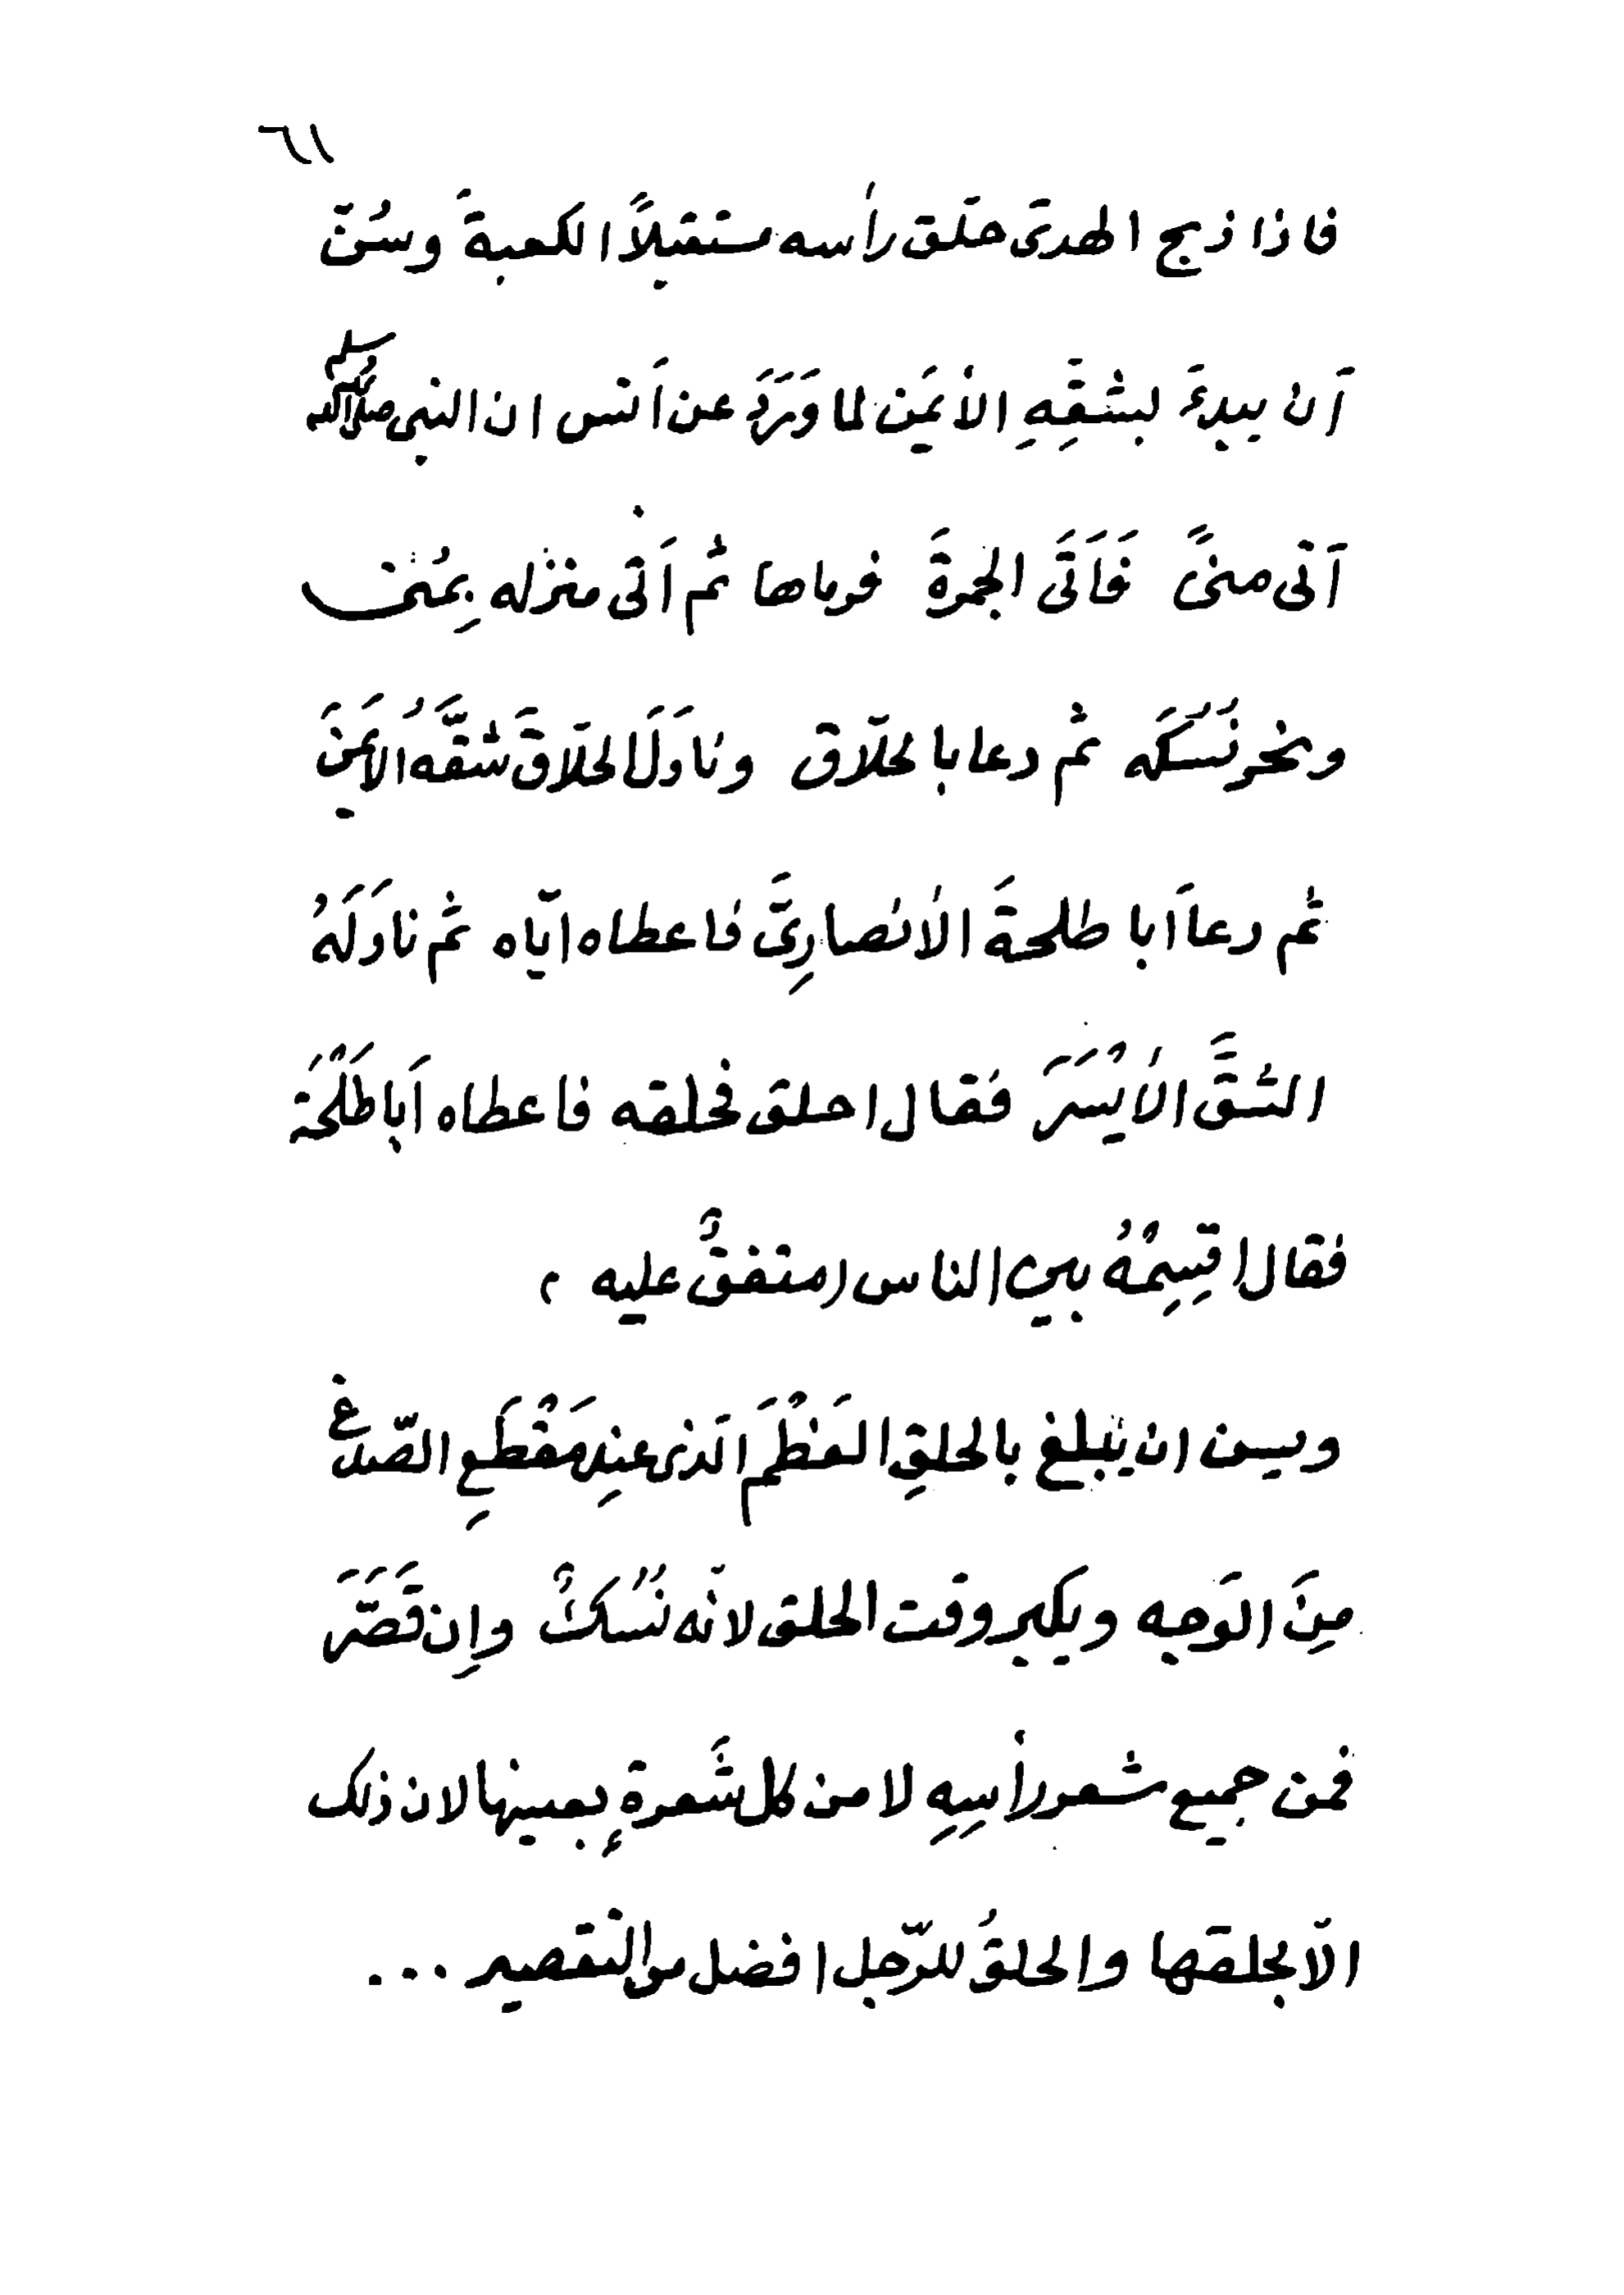 ٦١
فاذا ذبح الهدىَ حلق رأسه مستقبلاً الكعبةَ وسُنّ
اَن يبدءَ بشقِهِ الأيمَن لما وَرَدَ عن اَنس ان النبى صلى الله عليه وسلم
اَتى منىً فَاَتَى الجمرةَ فرماها ثم اَتى منزله بِمُنى
ونحر نُسُكَه ثم دعا بالحلّاق وناوَلَ الحلّاقَ شقَّهُ الاَيمنَ
ثم دعا اَبا طلحةَ الأنصارِىَّ فاعطاه ايّاه ثم ناوَلَهُ
الشقَّ الأَيْسَرَ فقال احلق فحلقه فاعطاه اَبا طَلْحَة
فقال اقسِمْهُ بين الناس (متفقٌ عليه)
ويسن ان يبلغ بالحلقِ العَظْمَ الّذى عندِ مَقْطَعِ الصّدغ
مِنَ الوَجه ويكبر وقت الحلق لانّه نُسُكٌ وإِن قَصَّرَ
فمن جميع شعر رأسِهِ لا من كل شَعرةٍ بعينها لان ذلك
الّا بحلقها والحلقُ للرّجل افضل من التقصير ...